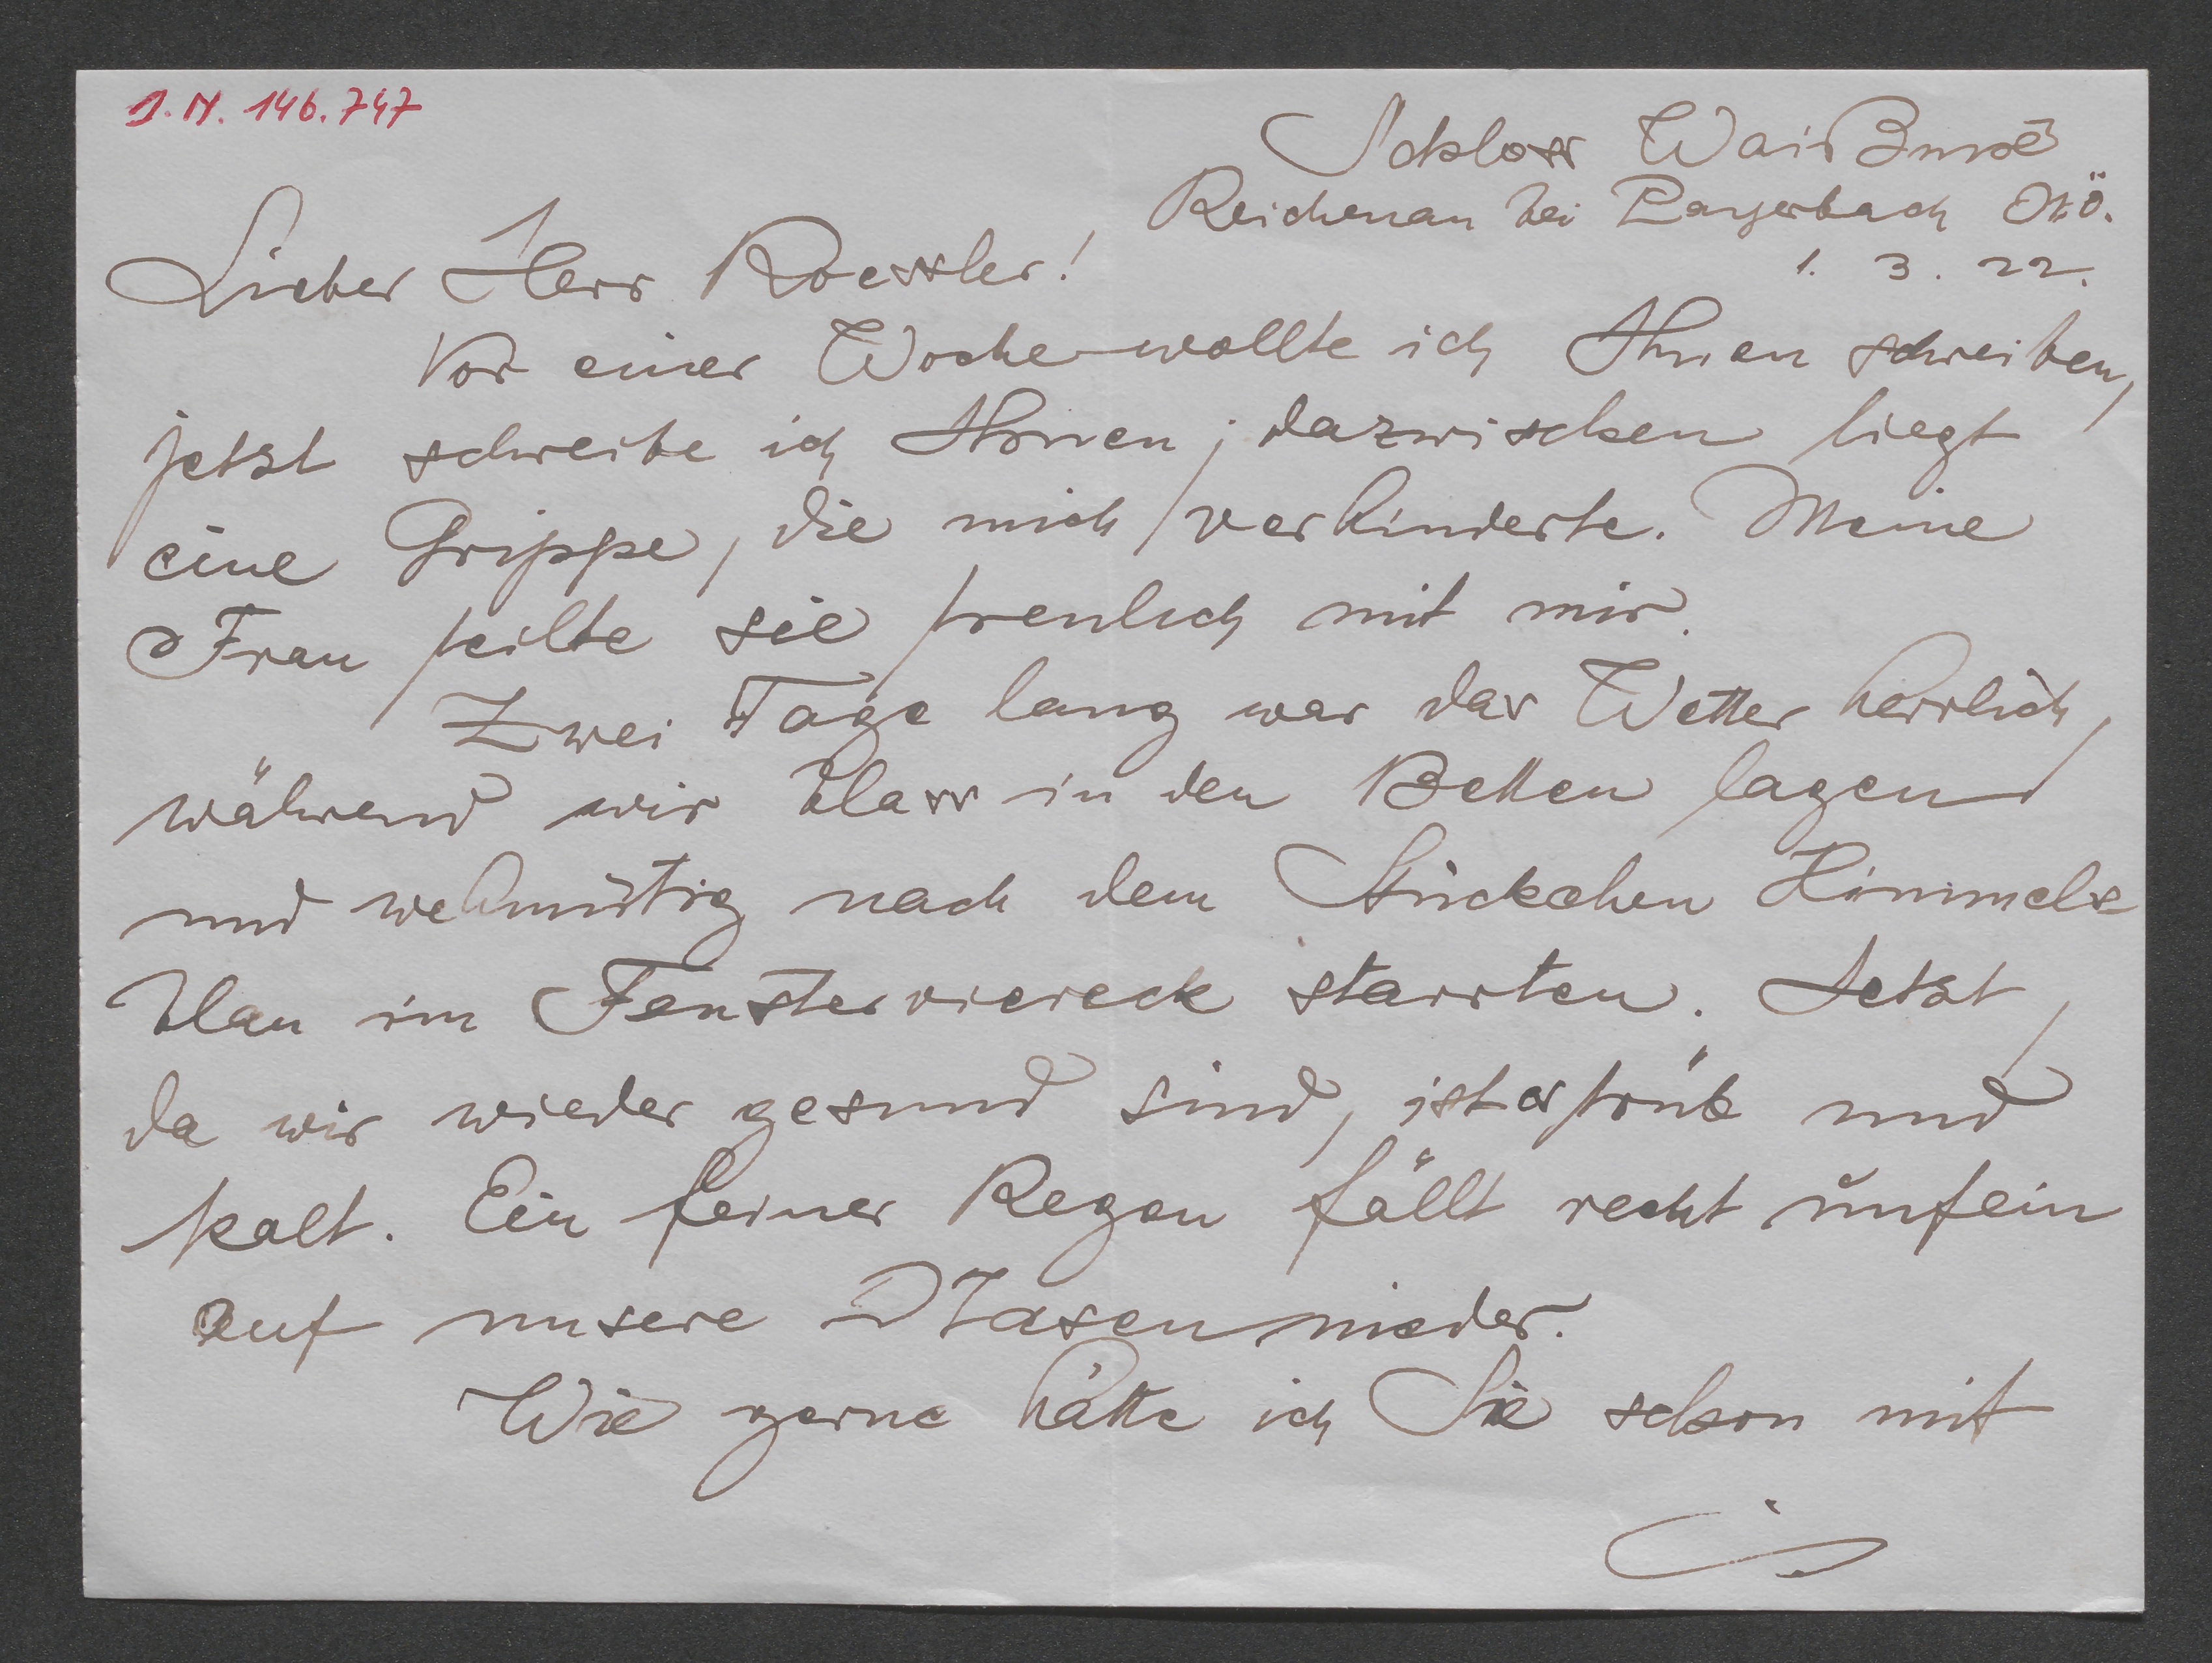 I.N. 146.747
Schloss Waißnix
Reichenau bei Payerbach NÖ.
1. 3. 22.
Lieber Herr Roessler!
Vor einer Woche wollte ich Ihnen schreiben,
jetzt schreibe ich Ihnen; dazwischen liegt
eine Grippe, die mich verhinderte. Meine
Frau teilte sie treulich mit mir.
Zwei Tage lang war das Wetter herrlich,
während wir blass in den Betten lagen
und wehmütig nach dem Stückchen Himmels
blau im Fensterviereck starrten. Jetzt,
da wir wieder gesund sind, ist es trüb und
kalt. Ein feiner Regen fällt recht unfein
auf unsere Nasen nieder.
Wie gerne hätte ich Sie schon mit